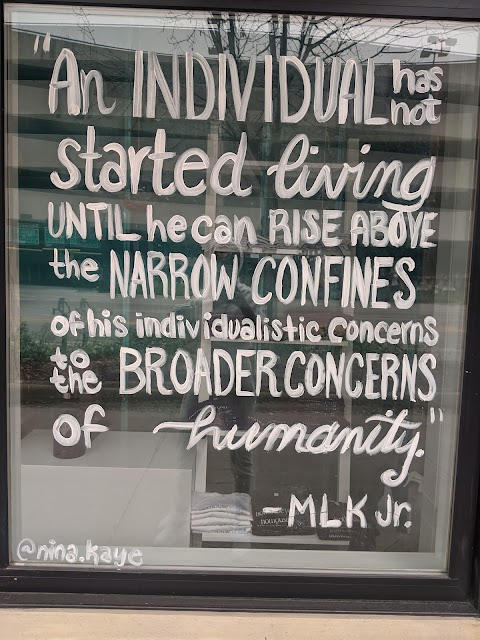 "An INDIVIDUAL has not
started living
UNTIL he can RISE ABOVE
the NARROW CONFINES
of his individualistic concerns
to the BROADER CONCERNS
of humanity."
- MLK Jr.
@nina.kaye